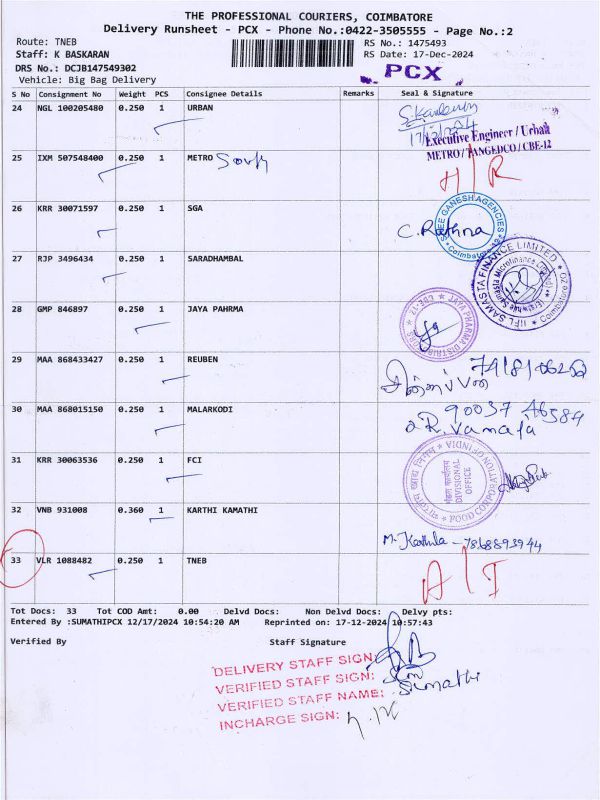 THE PROFESSIONAL COURIERS, COIMBATORE
Delivery Runsheet - PCX - Phone No.:0422-3505555 - Page No.:2
Route: TNEB RS No.: 1475493
Staff: K BASKARAN RS Date: 17-Dec-2024
DRS No.: DCJB147549302
Vehicle: Big Bag Delivery
PCX
S No Consignment No Weight PCS Consignee Details Remarks Seal & Signature
24 NGL 100205480 0.250 1 URBAN
17/12/2024
Executive Engineer / Urban
METRO / TANGEDCO / CBE-12
25 IXM 507548400 0.250 1 METRO South
H/R
26 KRR 30071597 0.250 1 SGA
C. Rathna
SREE GANESH AGENCIES
Coimbatore-12
27 RJP 3496434 0.250 1 SARADHAMBAL
IIFL SAMASTA FINANCE LIMITED
Samasta Microfinance Limited
Coimbatore
28 GMP 846897 0.250 1 JAYA PAHRMA
JAYA PHARMA DISTRIBUTORS
CBE-12
29 MAA 868433427 0.250 1 REUBEN
30 MAA 868015150 0.250 1 MALARKODI
90037 46584
R. Vanaja
31 KRR 30063536 0.250 1 FCI
FOOD CORPORATION OF INDIA
मंडल कार्यालय
DIVISIONAL
OFFICE
32 VNB 931008 0.360 1 KARTHI KAMATHI
M. Karthila - 7868893944
33 VLR 1088482 0.250 1 TNEB
A/I
Tot Docs: 33 Tot COD Amt: 0.00 Delvd Docs: Non Delvd Docs: Delvy pts:
Entered By :SUMATHIPCX 12/17/2024 10:54:20 AM Reprinted on: 17-12-2024 10:57:43
Verified By Staff Signature
DELIVERY STAFF SIGN:
VERIFIED STAFF SIGN:
VERIFIED STAFF NAME: Sumathi
INCHARGE SIGN: